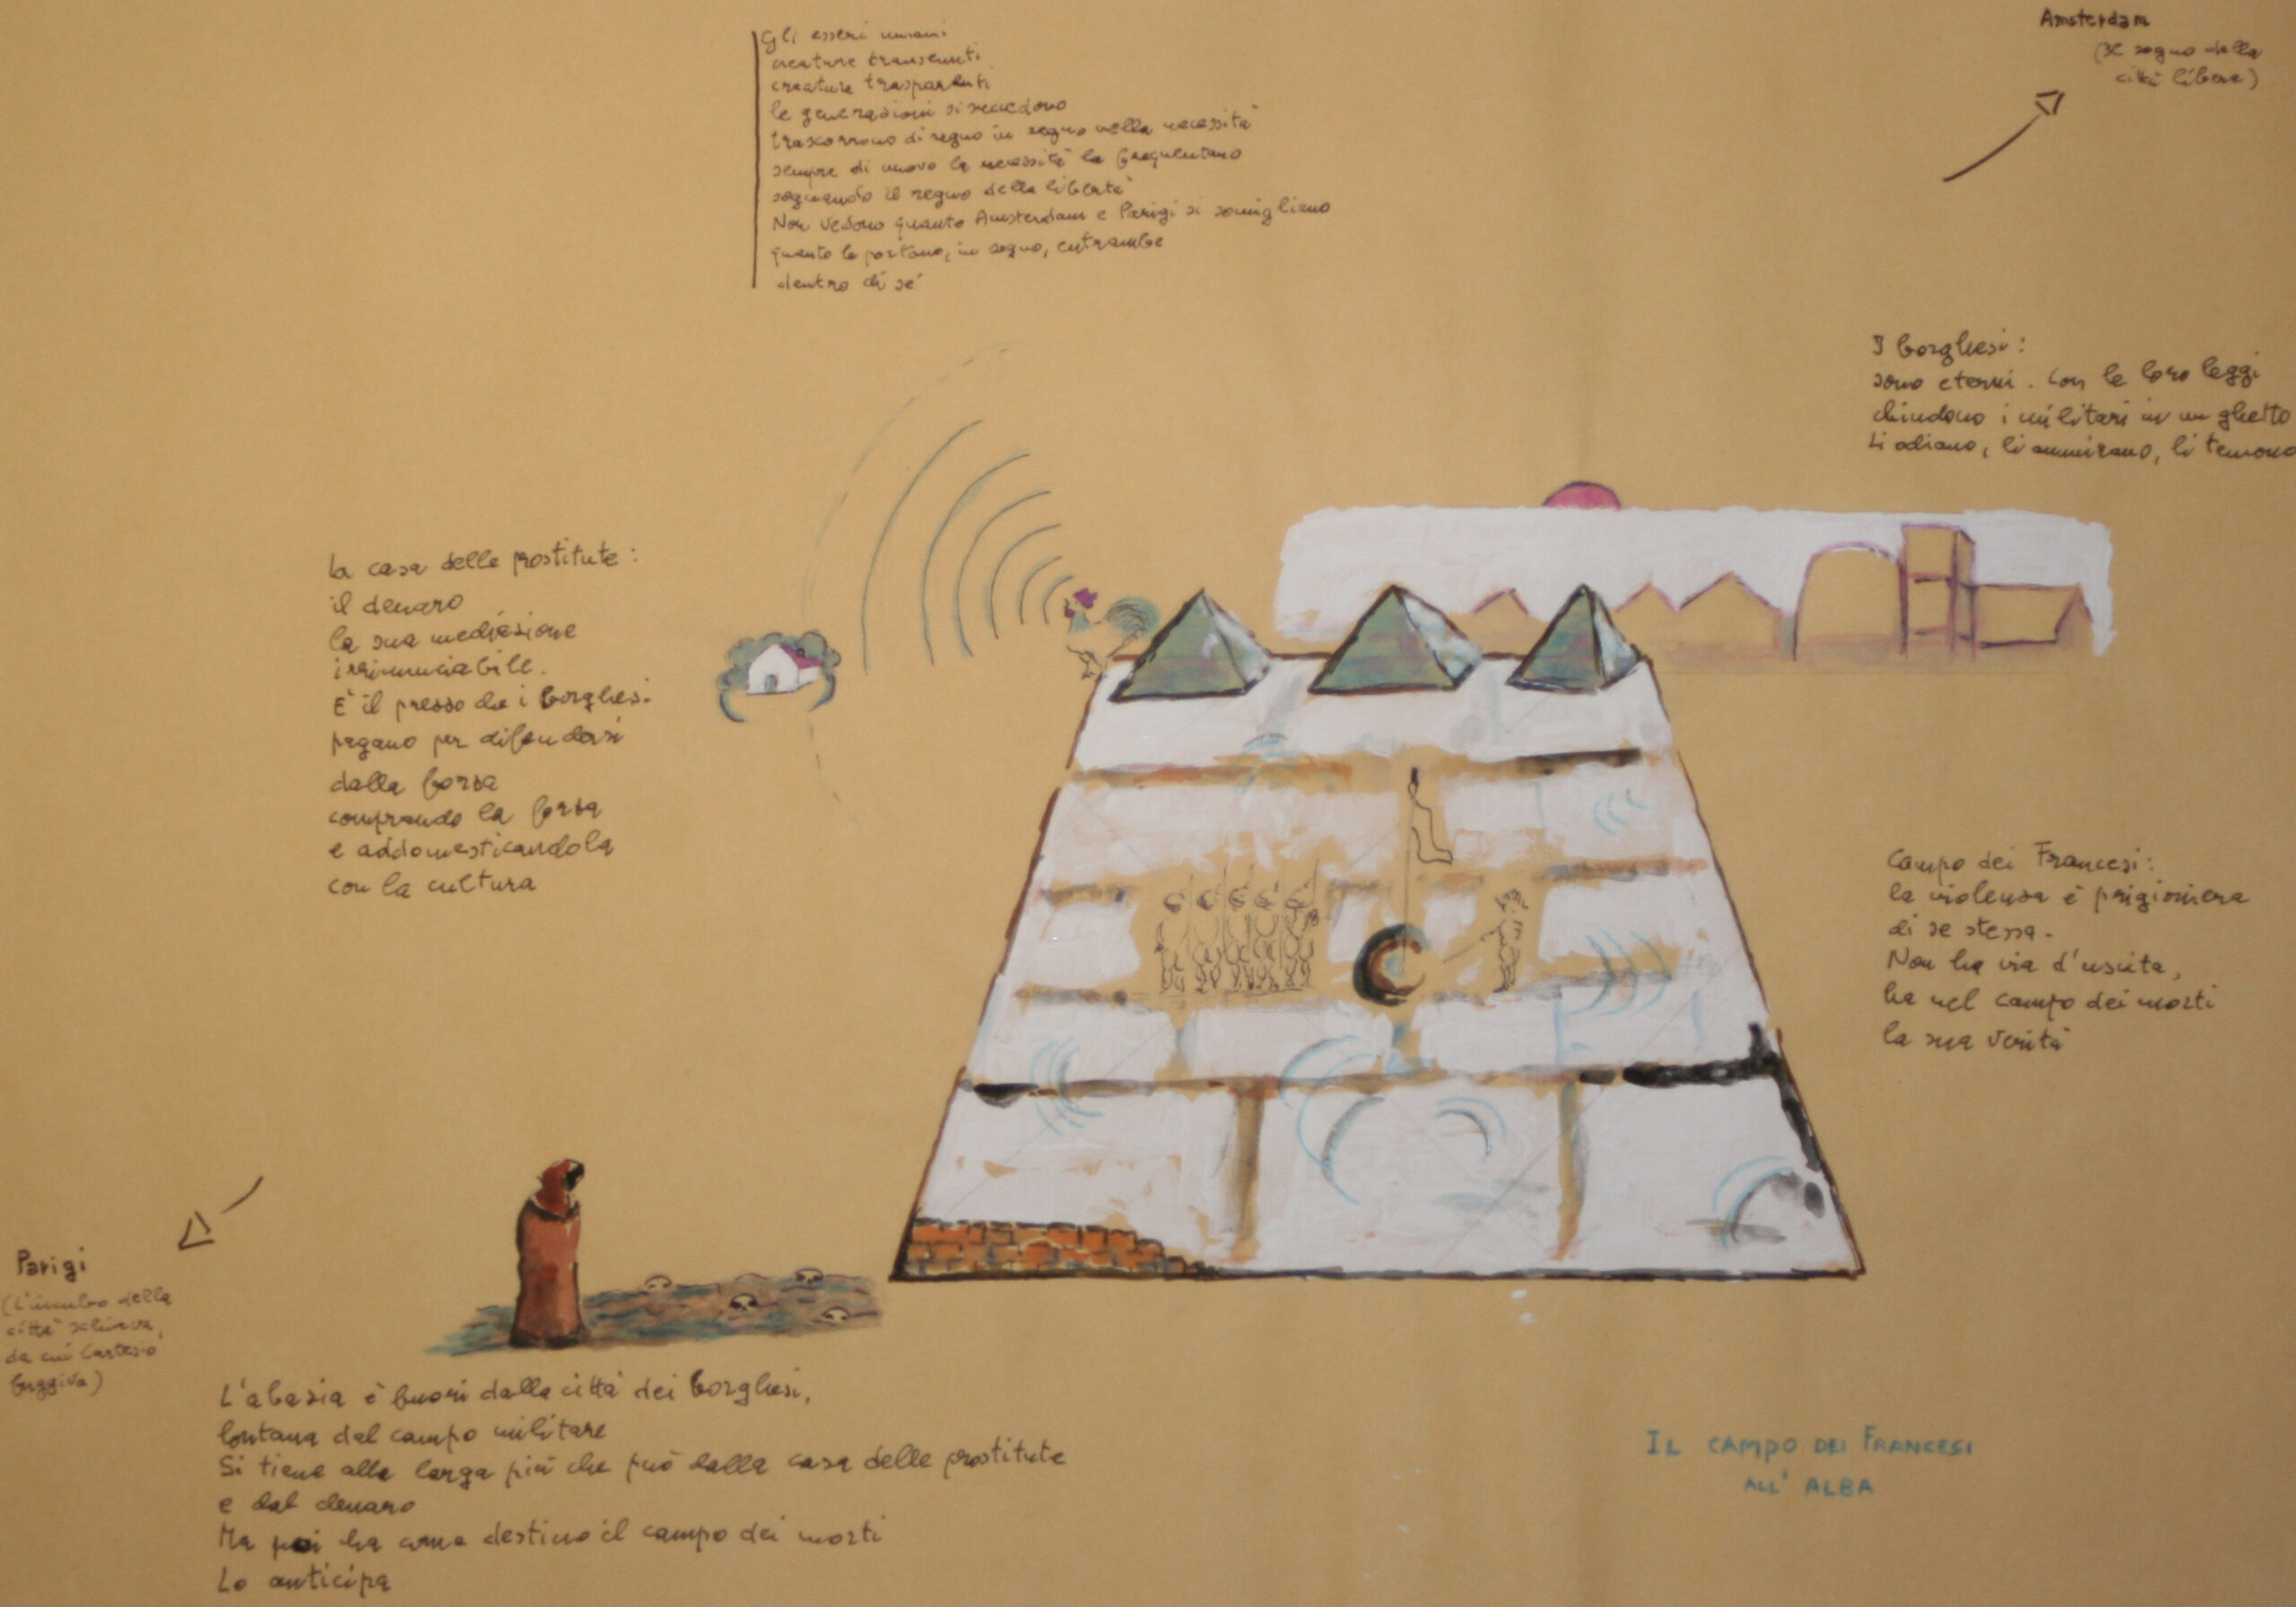 Gli esseri umani
creature transeunti
creature trasparenti
le generazioni si succedono
trascorrono di regno in regno nella necessità
sempre di nuovo la necessità la frequentano
sognando il regno della libertà
Non vedono quanto Amsterdam e Parigi si somigliano
quanto le portano, in sogno, entrambe
dentro di sé
Amsterdam
(Il sogno della
città libera)
I borghesi:
sono eterni. Con le loro leggi
chiudono i militari in un ghetto
Li odiano, li ammirano, li temono
La casa delle prostitute:
il denaro
la sua mediazione
irrinunciabile.
È il prezzo che i borghesi
pagano per difendersi
dalla forza
comprando la forza
e addomesticandola
con la cultura
Campo dei Francesi:
la violenza è prigioniera
di se stessa.
Non ha via d'uscita,
ha nel campo dei morti
la sua verità
Parigi
(L'incubo della
città schiava,
da cui Cartesio
fuggiva)
L'abazia è fuori dalla città dei borghesi,
lontana dal campo militare
Si tiene alla larga più che può dalla casa delle prostitute
e dal denaro
Ma poi ha come destino il campo dei morti
Lo anticipa
IL CAMPO DEI FRANCESI
ALL'ALBA